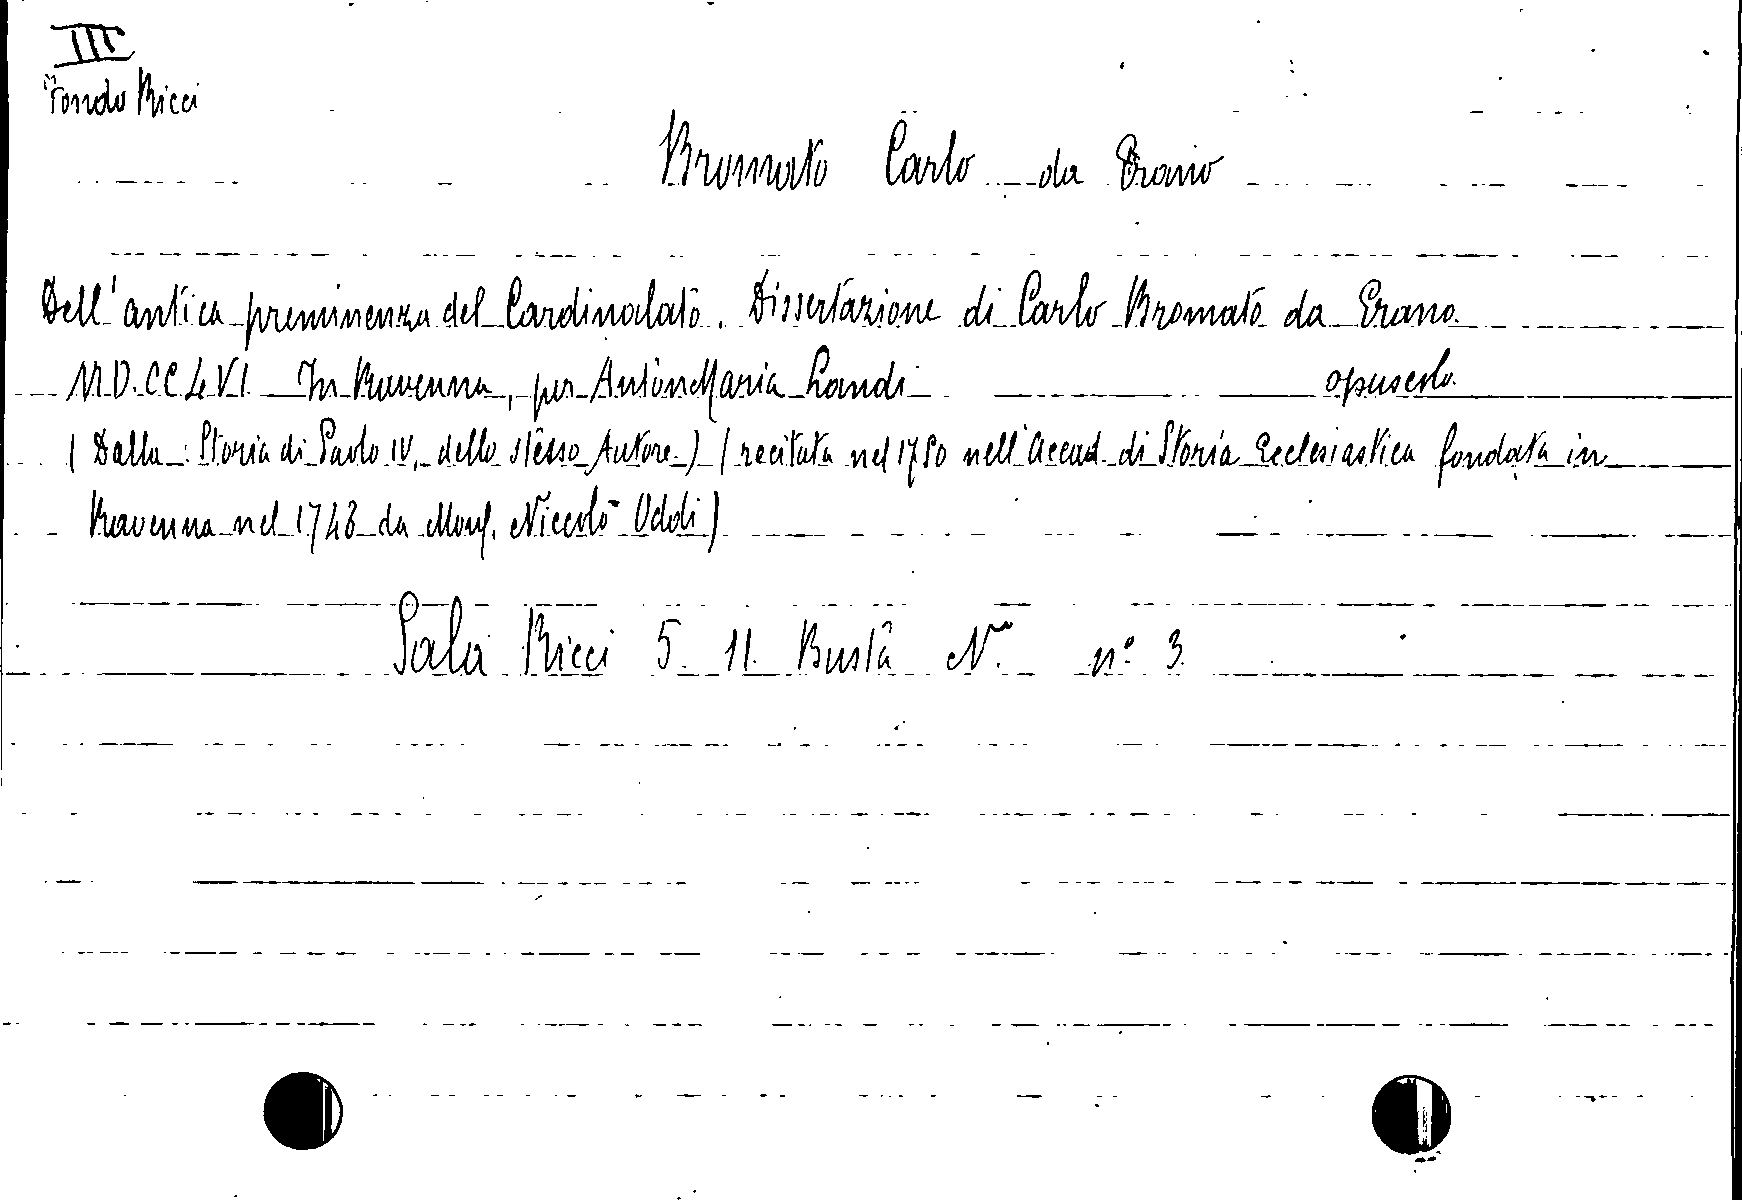 III
Fondo Ricci
Bromato Carlo da Erano
Dell'antica preminenza del Cardinalato. Dissertazione di Carlo Bromato da Erano.
M.D.CCLVI In Ravenna, per AntonMaria Landi opuscolo.
(Dalla Storia di Paolo IV, dello stesso Autore.) (recitata nel 1750 nell'Accad. di Storia Ecclesiastica fondata in
Ravenna nel 1748 da Mons. Niccolò Oddi)
Sala Ricci 5. 11. Busta N. n° 3.